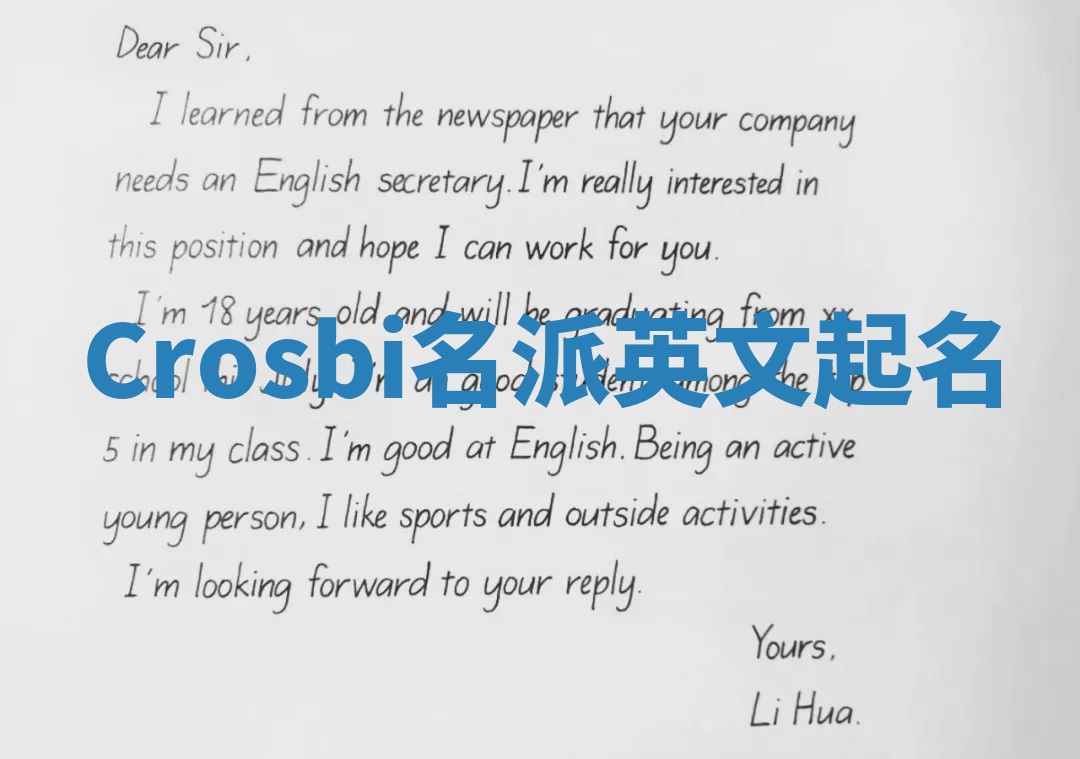 Dear Sir,
I learned from the newspaper that your company
needs an English secretary. I'm really interested in
this position and hope I can work for you.
I'm 18 years old and will be graduating from xx
Crosbi名派英文起名
school this July. I'm a good student among the top
5 in my class. I'm good at English. Being an active
young person, I like sports and outside activities.
I'm looking forward to your reply.
Yours,
Li Hua.